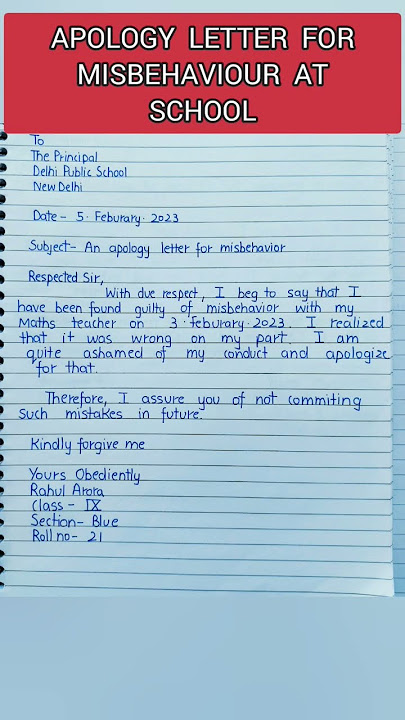 APOLOGY LETTER FOR
MISBEHAVIOUR AT
SCHOOL
To
The Principal
Delhi Public School
New Delhi
Date- 5. Feburary. 2023
Subject- An apology letter for misbehavior
Respected Sir,
With due respect, I beg to say that I
have been found guilty of misbehavior with my
Maths teacher on 3. feburary. 2023. I realized
that it was wrong on my part. I am
quite ashamed of my conduct and apologize
for that.
Therefore, I assure you of not commiting
such mistakes in future.
Kindly forgive me
Yours Obediently
Rahul Arora
Class - IX
Section- Blue
Roll no- 21